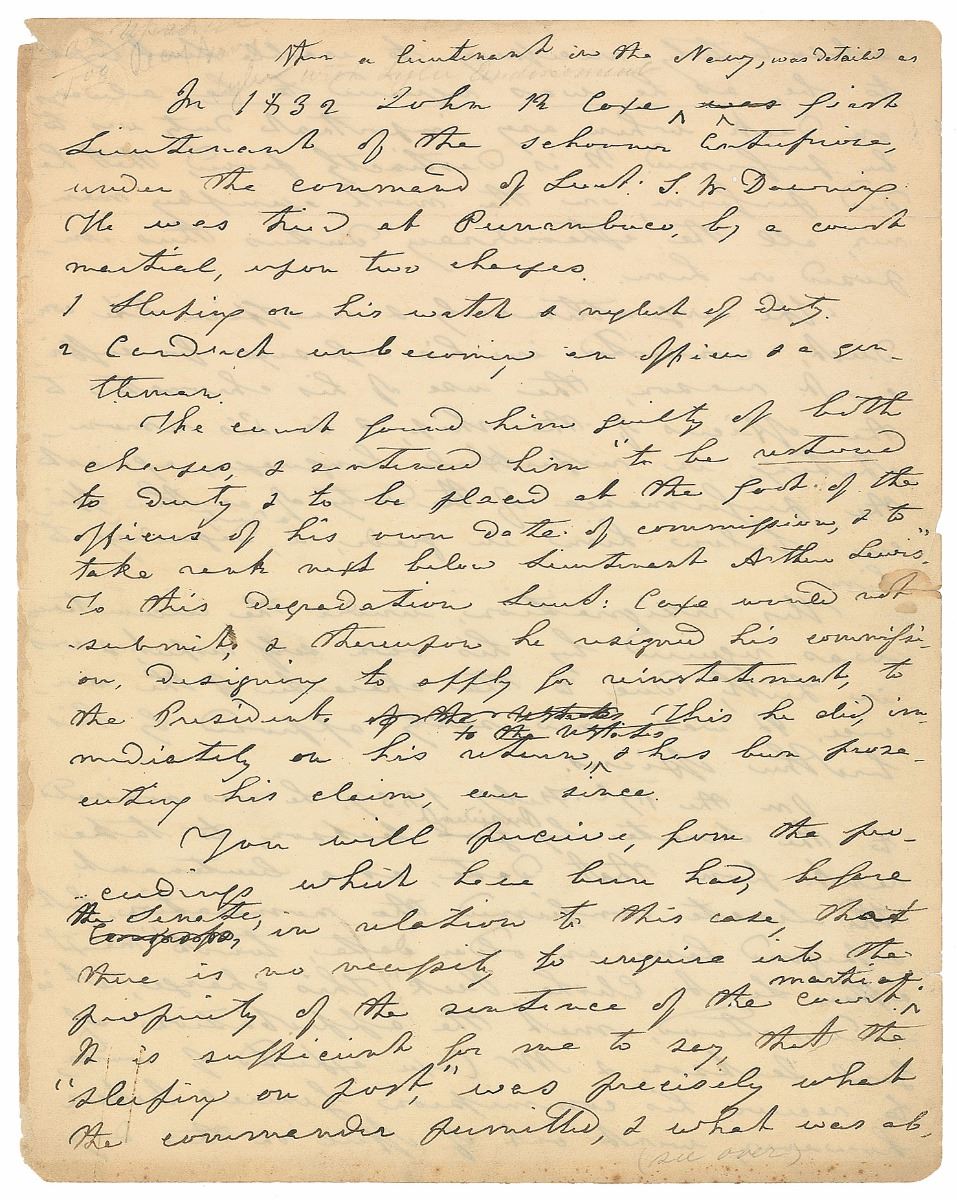 then a lieutenant in the Navy, was detailed as
In 1832 John R Coxe, was first
Lieutenant of the schooner Enterprise,
under the command of Lieut: S. W Downing.
He was tried at Pernambuco, by a court
martial, upon two charges.
1 Sleeping on his watch & neglect of duty.
2 Conduct unbecoming an officer & a gen-
tleman.
The court found him guilty of both
charges, & sentenced him "to be restored
to duty & to be placed at the foot of the
officers of his own date of commission, & to
take rank next below Lieutenant Arthur Lewis".
To this degradation Lieut: Coxe would not
submit, & thereupon he resigned his commissi-
on, designing to apply for reinstatement, to
the President. This he did, im-
to the UStates
mediately on his return, & has been prose-
cuting his claim, ever since.
You will perceive, from the pro-
ceedings which have been had, before
the Senate,
Congress, in relation to this case, that
there is no necessity to enquire into the
martial.
propriety of the sentence of the court
It is sufficient for me to say, that the
"sleeping on post," was precisely what
the commander permitted, & what was ab-
(see over)